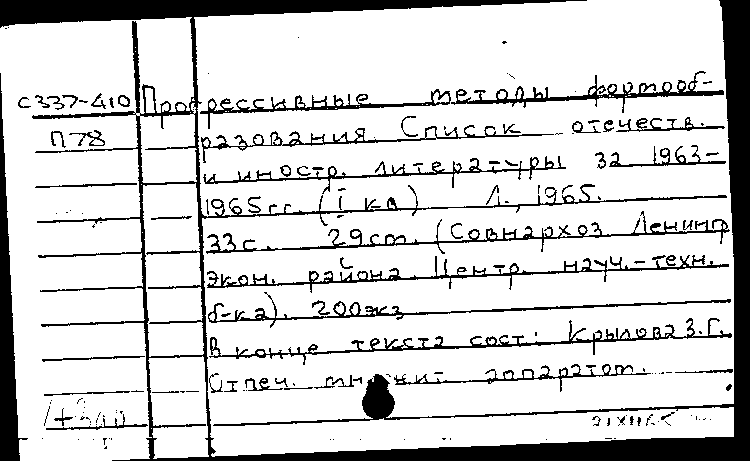 С337-410 Прогрессивные методы формооб-
П78 разования. Список отечеств.
и иностр. литературы за 1963-
1965 гг. (I кв) Л., 1965.
33 с. 29 см. (Совнархоз Ленингр
экон. района. Центр. науч.-техн.
б-ка). 200 экз
В конце текста сост: Крылова З.Г.
Отпеч. множит. аппаратом.